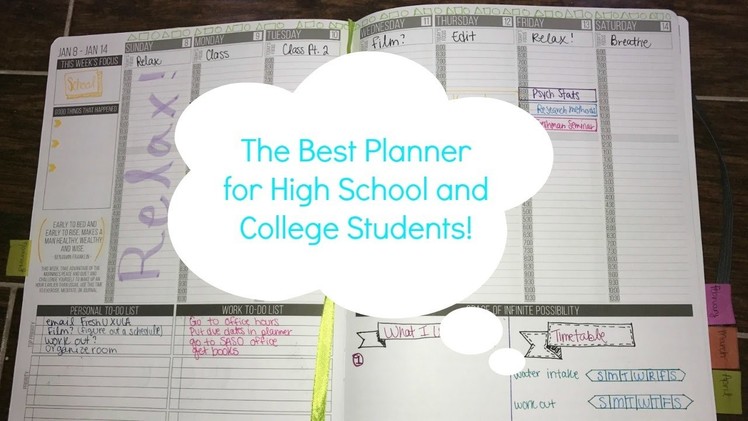 JAN 8 - JAN 14
SUNDAY 8
MONDAY 9
TUESDAY 10
WEDNESDAY 11
THURSDAY 12
FRIDAY 13
SATURDAY 14
Relax
Class
Class Pt. 2
Film?
Edit
Relax!
Breathe
THIS WEEK'S FOCUS
School
GOOD THINGS THAT HAPPENED
Relax!
Psych Stats
Research methods
The Best Planner
for High School and
College Students!
EARLY TO BED AND
EARLY TO RISE, MAKES A
MAN HEALTHY, WEALTHY
AND WISE.
- BENJAMIN FRANKLIN
PERSONAL TO-DO LIST
email FreshUXULA
Film? (figure out a schedule)
work out?
organize room
WORK TO-DO LIST
Go to office hours
Put due dates in planner
go to SASO office
get books
OF INFINITE POSSIBILITY
What I
1
Timetable
water intake S M T W R F S
work out S M T W T F S